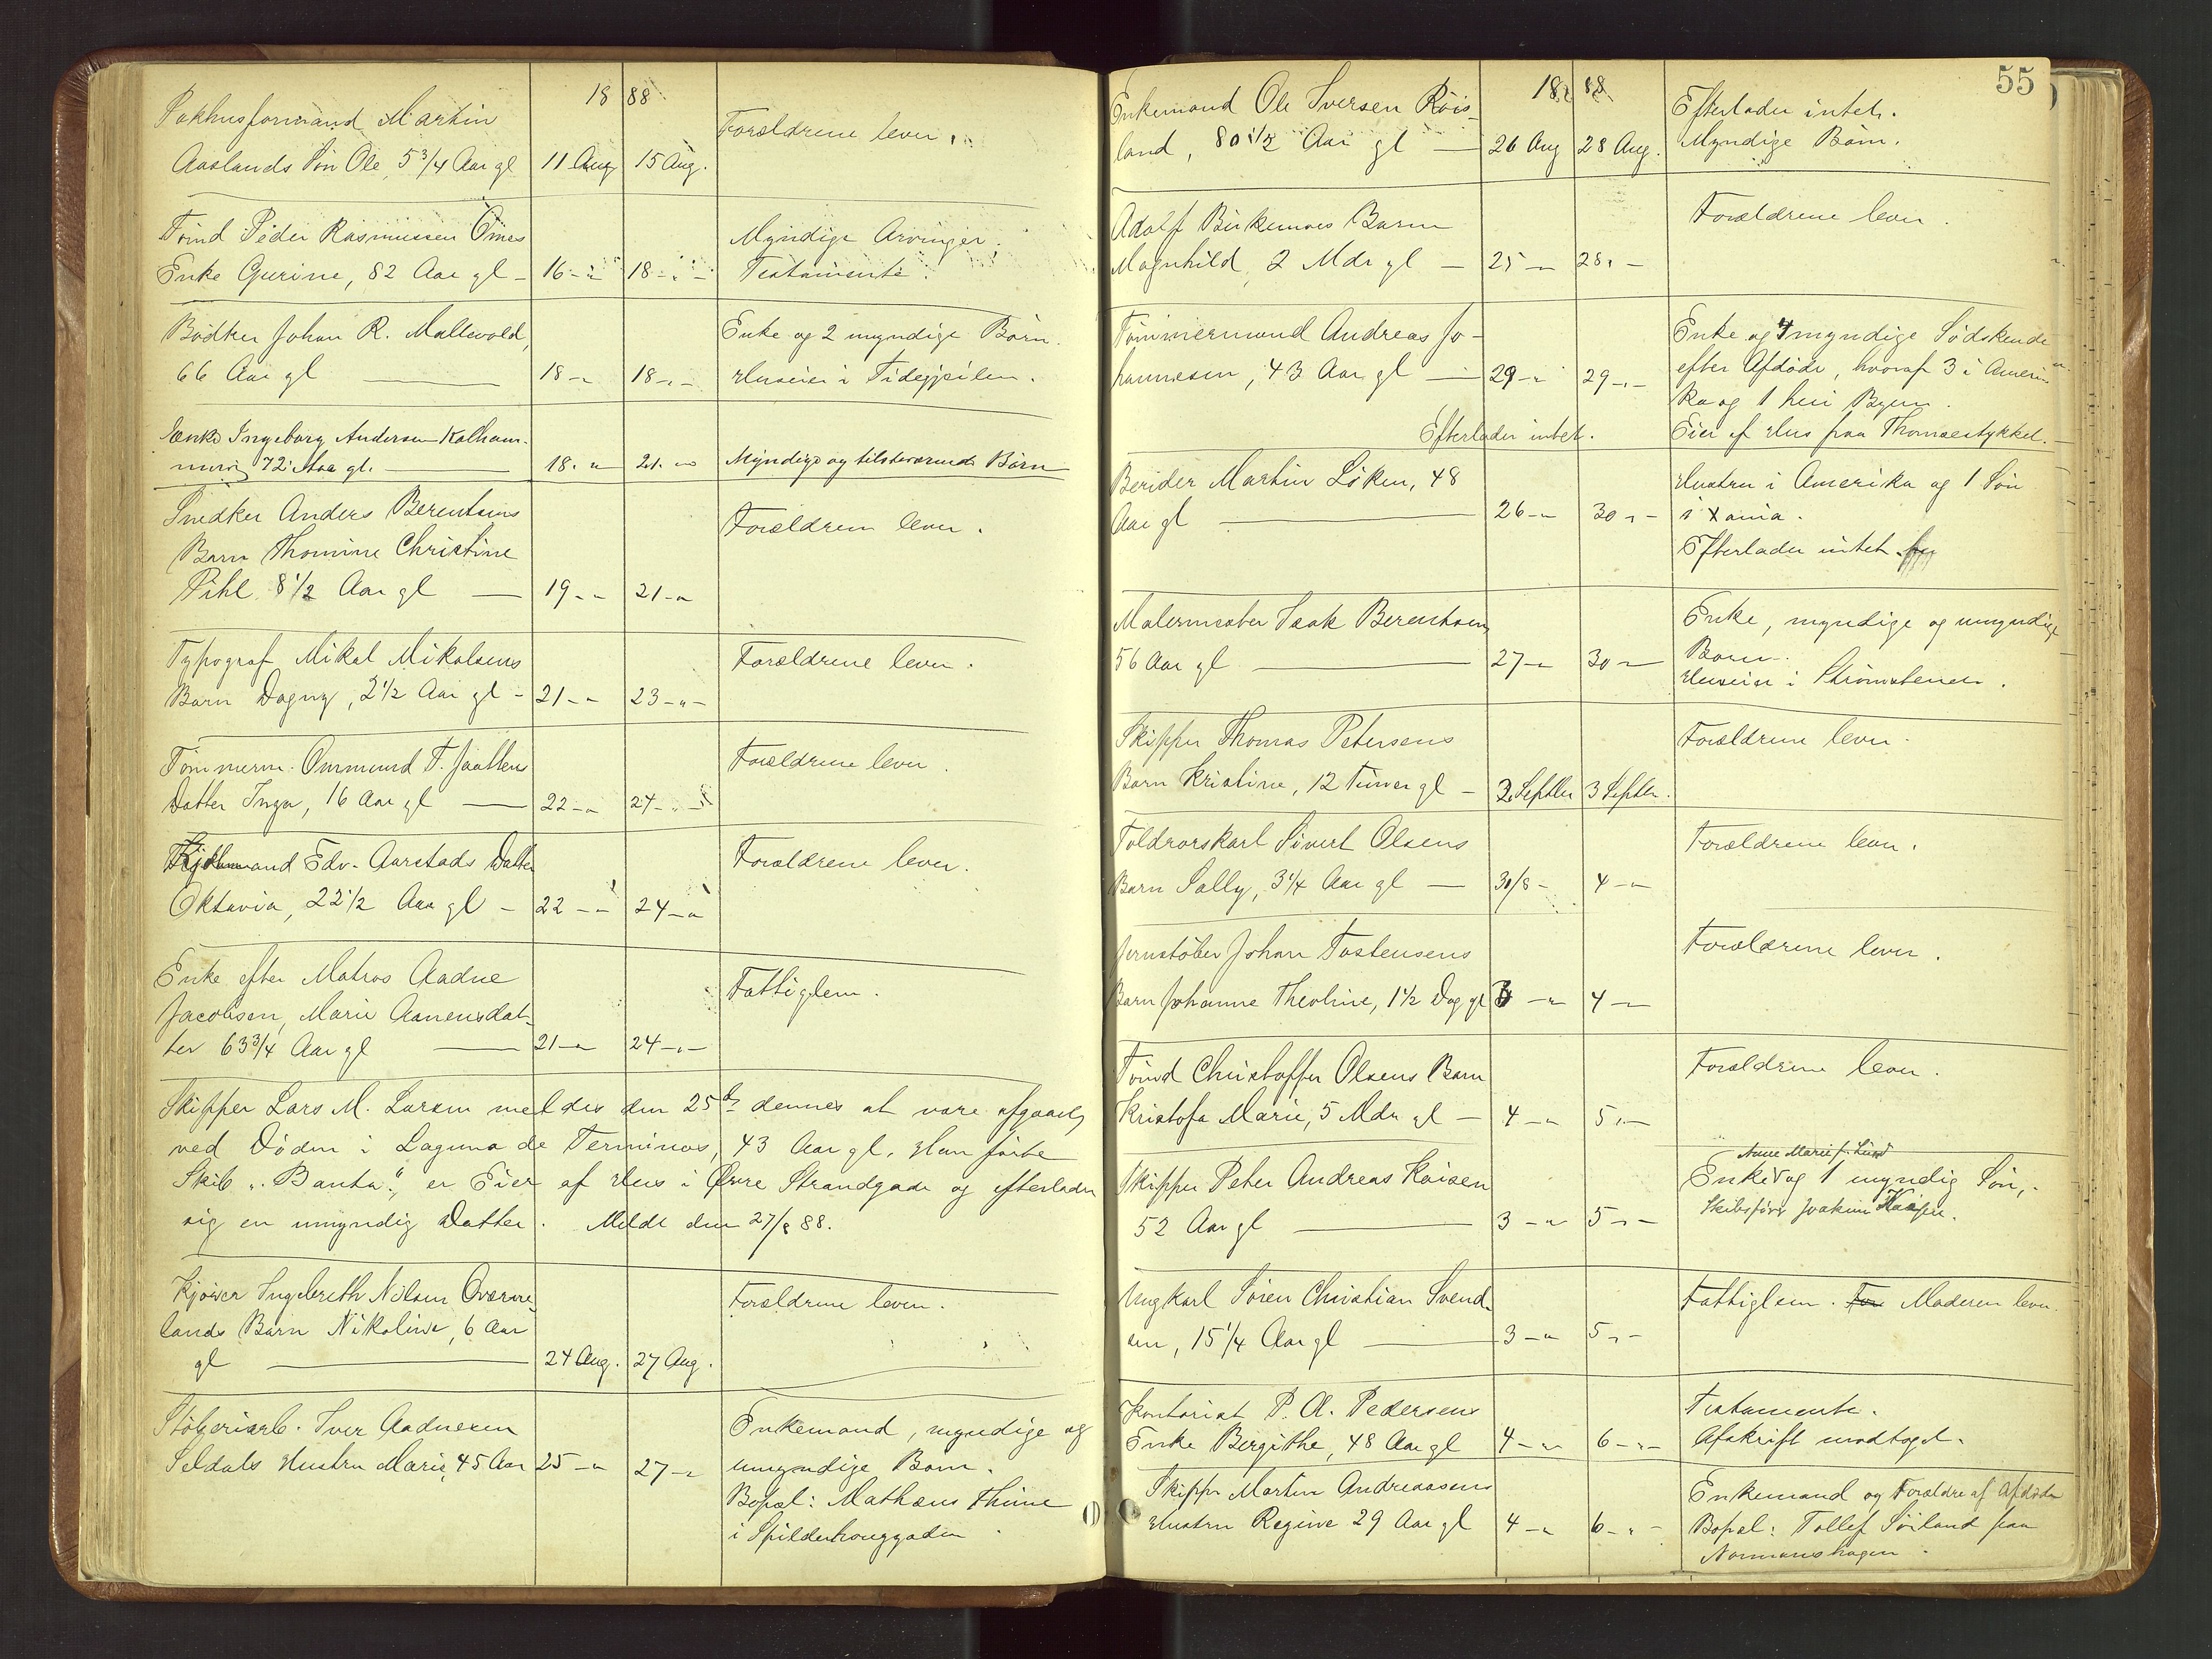 18 88
Pakhusformand Martin
Aaslands Søn Ole, 5 3/4 Aar gl 11 Aug 15 Aug.
Forældrene lever.
Tømd Peder Rasmussen Ømes
Enke Gurine, 82 Aar gl – 16 – " 18 – " –
Myndige Arvinger.
Testamente.
Bødker Johan R. Mallevold,
66 Aar gl — 18 – " 18 – " –
Enke og 2 myndige Børn.
Huseier i Tidegjeilen.
Enke Ingeborg Andersen Kalham-
mer 72 Aar gl. — 18. " 21. "
Myndige og tilstedeværende Børn
Snedker Anders Berentsens
Barn Thomine Christine
Pihl 8 1/2 Aar gl — 19 – " 21 – "
Forældrene lever.
Typograf Mikal Mikalsens
Barn Dagny, 2 1/2 Aar gl – 21 – " 23 – " –
Forældrene lever.
Tømmerm. Ommund T. Jaattens
Datter Inga, 16 Aar gl — 22 – " 24 – " –
Forældrene lever.
Edv. Aarstads Datter
Oktavia, 22 1/2 Aar gl – 22 – " 24 – "
Forældrene lever.
Enke efter Matros Aadne
Jacobsen, Marie Aanensdat-
ter 63 3/4 Aar gl — 21 – " 24 – " –
Fattiglem.
Skipper Lars M. Larsen meldes den 25de dennes at være afgaaet
ved Døden i Laguna de Terminos, 43 Aar gl. Han førte
Skib "Banta", er Eier af Hus i Øvre Strandgade og efterlader
sig en umyndig Datter. Meldt den 27/8 88.
Kjører Ingebreth Nilsen Overre-
lands Barn Nikoline, 6 Aar
gl — 24 Aug. 27 Aug.
Forældrene lever.
Støberiarb. Iver Aadnesen
Seldals Hustru Marie, 45 Aar 25 – " 27 – "
Enkemand, myndige og
umyndige Børn.
Bopæl: Mathæus Thime
i Spilderhouggaden
55
18 88
Enkemand Ole Iversen Røis-
land, 80 1/2 Aar gl — 26 Aug 28 Aug.
Efterlader intet.
Myndige Børn.
Adolf Birkenæs Barn
Magnhild, 2 Mdr gl – 25 – " 28 " –
Forældrene lever.
Tømmermand Andreas Jo-
hannesen, 43 Aar gl — 29 – " 29 – " –
Efterlader intet.
Enke og 4 myndige Sødskende
efter Afdøde, hvoraf 3 i Ameri-
ka og 1 her i Byen.
Eier af Hus paa Thomasstykket.
Berider Martin Løken, 48
Aar gl — 26 – " 30 " –
Hustru i Amerika og 1 Søn
i Xania.
Efterlader intet.
Malermester Isak Berentsen,
56 Aar gl — 27 – " 30 – "
Enke, myndige og umyndige
Børn.
Huseier i Strømstenen.
Skipper Thomas Petersens
Barn Kristine, 12 Timer gl – 2 Septber 3 Septbr.
Forældrene lever.
Toldrorskarl Sivert Olsens
Barn Sally, 3 1/4 Aar gl — 30/8 – 4 – "
Forældrene lever.
Jernstøber Johan Tostensens
Barn Johanne Theoline, 1 1/2 Dag gl 3 – " 4 – "
Forældrene lever.
Tømd Christoffer Olsens Barn
Kristofa Marie, 5 Mdr gl – 4 – " 5 " –
Forældrene lever.
Skipper Peter Andreas Kaisen
52 Aar gl — 3 – " 5 " –
Anne Marie f. Lund
Enke og 1 myndig Søn,
Skibsfører Joakim Kaisen.
Ungkarl Søren Christian Svend-
sen, 15 1/4 Aar gl — 3 – " 5 " –
Fattiglem. For Moderen lever.
Kontorist P. A. Pedersens
Enke Bergithe, 48 Aar gl 4 – " 6 – " –
Testamente.
Afskrift modtaget.
Skipper Martin Andreassens
Hustru Regine 29 Aar gl 4 – " 6 – " –
Enkemand og Forældre af Afdøde
Bopæl: Tollef Sørland paa
Normanshagen.